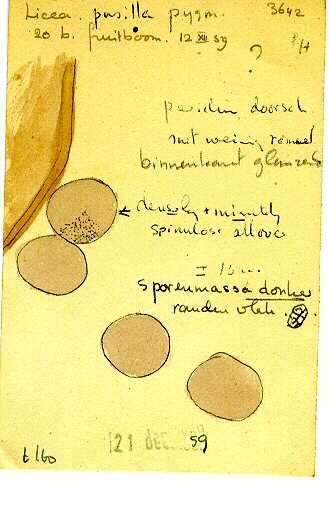 Licea pusilla pygm. 3642
20 b. fruitboom. 12 XII 59
?
peridin doorsch
met weinig
binnenkant glanzend
densely + minutely
spinulose allover
±
Sporenmassa donker
randen vlek.
121 DEC 59
t/60